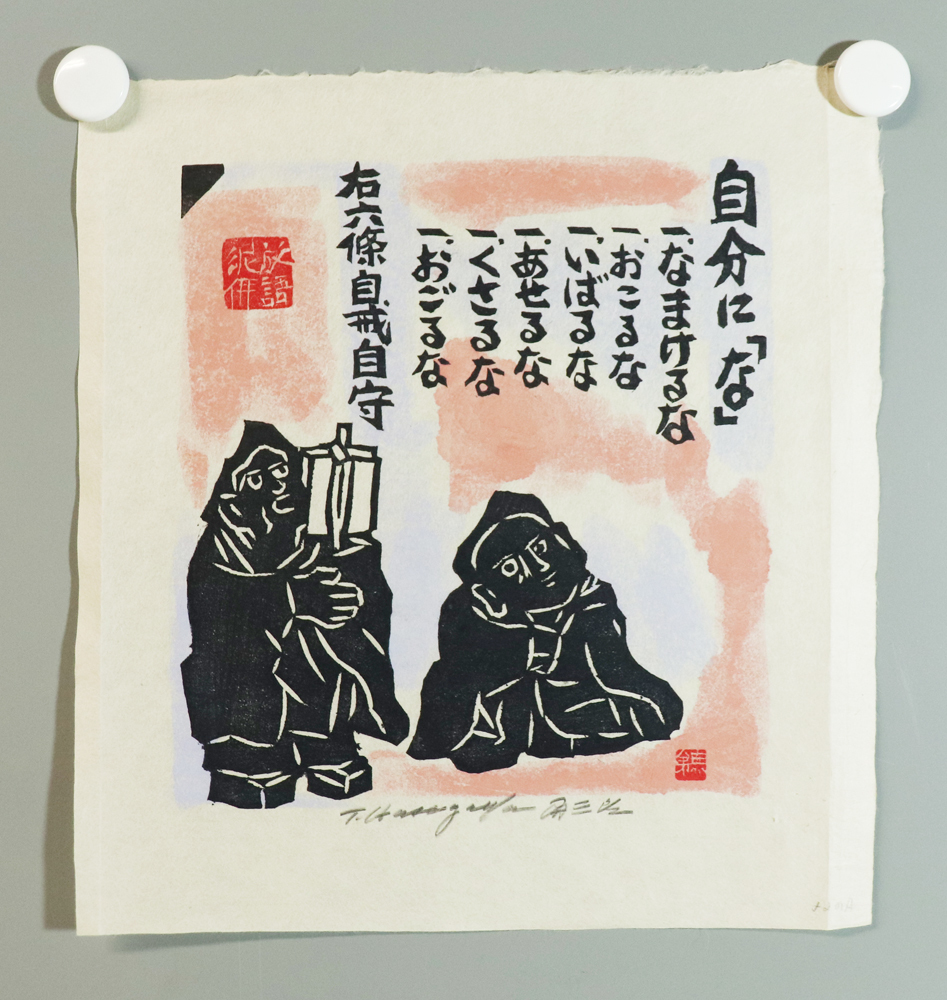 自分に「な」
一、なまけるな
一、おこるな
一、いばるな
一、あせるな
一、くさるな
一、おごるな
右六條自戒自守
T. Hasegawa